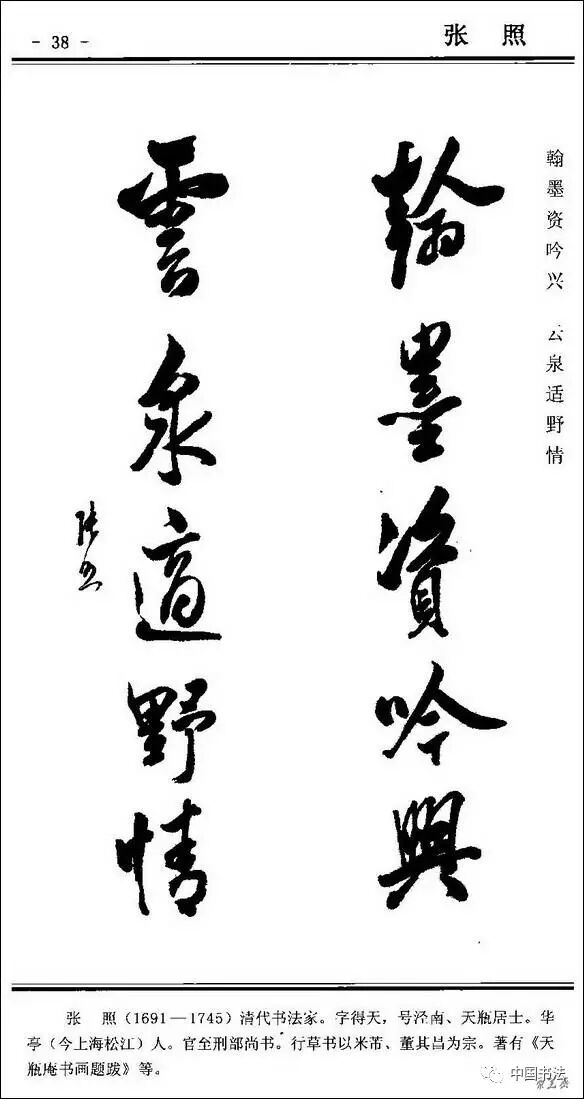 - 38 -
张 照
翰墨资吟兴 云泉适野情
翰墨資吟興
雲泉適野情
張照
张 照(1691—1745)清代书法家。字得天,号泾南、天瓶居士。华
亭(今上海松江)人。官至刑部尚书。行草书以米芾、董其昌为宗。著有《天
瓶庵书画题跋》等。
中国书法